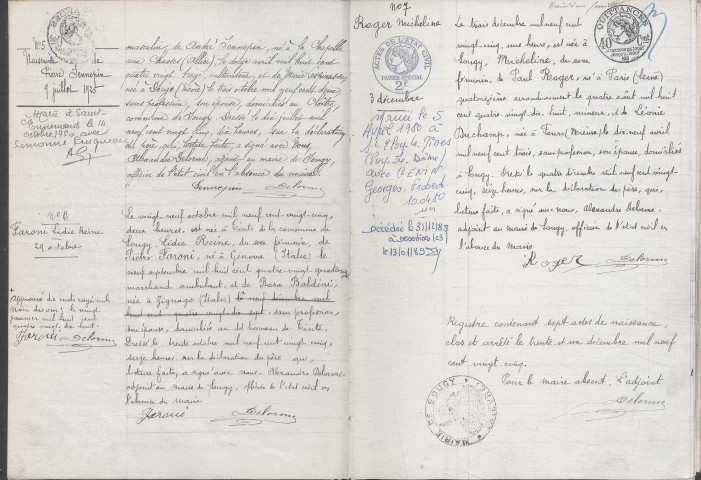 N°5
Naissance
de
Pierre Sennepin
9 juillet 1925
Marié à Saint-
le 14
octobre 1950 avec
Simonne
masculin, de André Sennepin, né à la Chapelle
aux Chasses (Allier), le douze avril mil huit cent
quatre vingt seize, cultivateur, et de Marie
née à (Nièvre) le trois octobre mil neuf cent
sans profession, son épouse, domiciliés au
commune de Cougny. Dressé le dix juillet mil
neuf cent vingt cinq, dix heures, sur la déclaration
du père, qui, lecture faite, a signé avec Nous,
Alexandre Delorme, adjoint au maire de Cougny,
officier de l'état civil en l'absence du maire
Sennepin Delorme
N°6
Faroni Lidie Reine
29 octobre
approuvé de
nuls le vingt
janvier mil huit cent
quatre vingt dix huit
Faroni Delorme
Le vingt neuf octobre mil neuf cent vingt-cinq,
deux heures, est née à de la commune de
Lidie Reine, du sexe féminin, de
Piètro Faroni, né à Genova (Italie) le
neuf septembre mil huit cent quatre vingt
marchand ambulant, et de Rosa Baldini,
née à Zignago (Italie) le neuf décembre mil
huit cent quatre vingt dix sept, sans profession,
son épouse, domiciliés au hameau de
Dressé le trente octobre mil neuf cent vingt cinq,
seize heures, sur la déclaration du père qui,
lecture faite, a signé avec nous, Alexandre Delorme
adjoint au maire de officier de l'état civil en
l'absence du maire
Faroni Delorme
N°7
Roger Micheline
ACTES DE L'ETAT CIVIL
PAPIER SPECIAL
2F
3 décembre
Mariée le 5
Avril 1950 à
(Puy de Dôme)
avec GENIN
Georges
décédée le 31/12/83
à (03)
le 13/01/83
QUITTANCES
40 Cent
Le trois décembre mil neuf cent
vingt-cinq, une heure, est née à
Micheline, du sexe
féminin, de Paul Roger, né à Paris (Seine)
quatorzième arrondissement le quatre août mil huit
cent quatre-vingt-dix-huit, mineur, et de Léonie
Duchamp, née à Tours (Nièvre) le dix-neuf avril
mil neuf cent trois, sans profession, son épouse, domiciliés
à Dressé le quatre décembre mil neuf cent vingt-
cinq, seize heures, sur la déclaration du père, qui,
lecture faite, a signé avec nous, Alexandre Delorme,
adjoint au maire de officier de l'état civil en
l'absence du maire
Roger Delorme
Registre contenant sept actes de naissance,
clos et arrêté le trente et un décembre mil neuf
cent vingt-cinq.
Pour le maire absent, l'adjoint
Delorme
MAIRIE DE